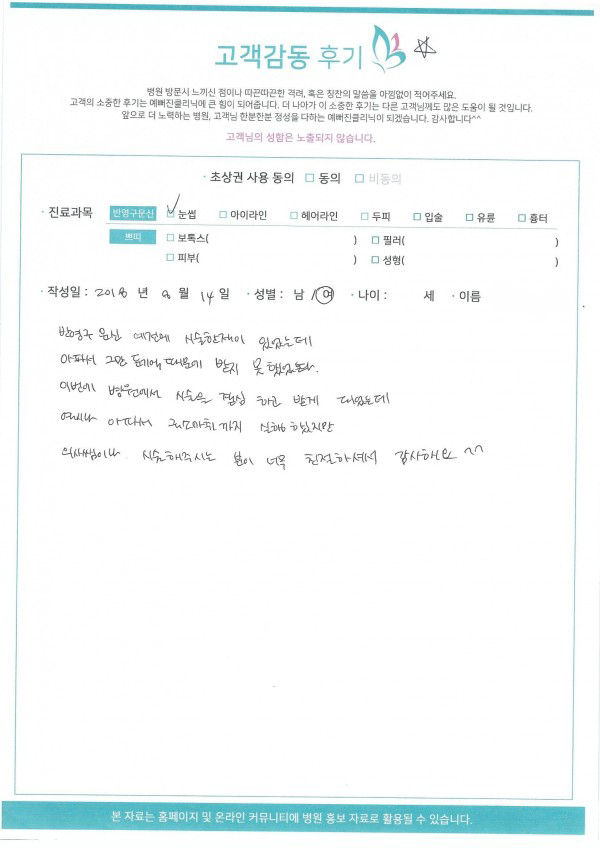 고객감동 후기
병원 방문시 느끼신 점이나 따끈따끈한 격려, 혹은 칭찬의 말씀을 아낌없이 적어주세요.
고객의 소중한 후기는 예뻐진클리닉에 큰 힘이 되어줍니다. 더 나아가 이 소중한 후기는 다른 고객님께도 많은 도움이 될 것입니다.
앞으로 더 노력하는 병원, 고객님 한분한분 정성을 다하는 예뻐진클리닉이 되겠습니다. 감사합니다^^
고객님의 성함은 노출되지 않습니다.
· 초상권 사용 동의 □ 동의 □ 비동의
· 진료과목 반영구문신 □ 눈썹 □ 아이라인 □ 헤어라인 □ 두피 □ 입술 □ 유륜 □ 흉터
쁘띠 □ 보톡스( ) □ 필러( )
□ 피부( ) □ 성형( )
· 작성일 : 2018 년 8 월 14 일 · 성별 : 남 / 여 · 나이 : 세 · 이름
반영구 문신 예전에 시술한적이 있었는데
아파서 그만 때문에 받지 못 했었는데.
이번에 병원에서 시술을 결심 하고 받게 되었는데
역시나 아파서 국소마취까지 실행 하였지만
의사쌤이나 시술해주시는 분이 너무 친절하셔서 감사해요 ^^
본 자료는 홈페이지 및 온라인 커뮤니티에 병원 홍보 자료로 활용될 수 있습니다.